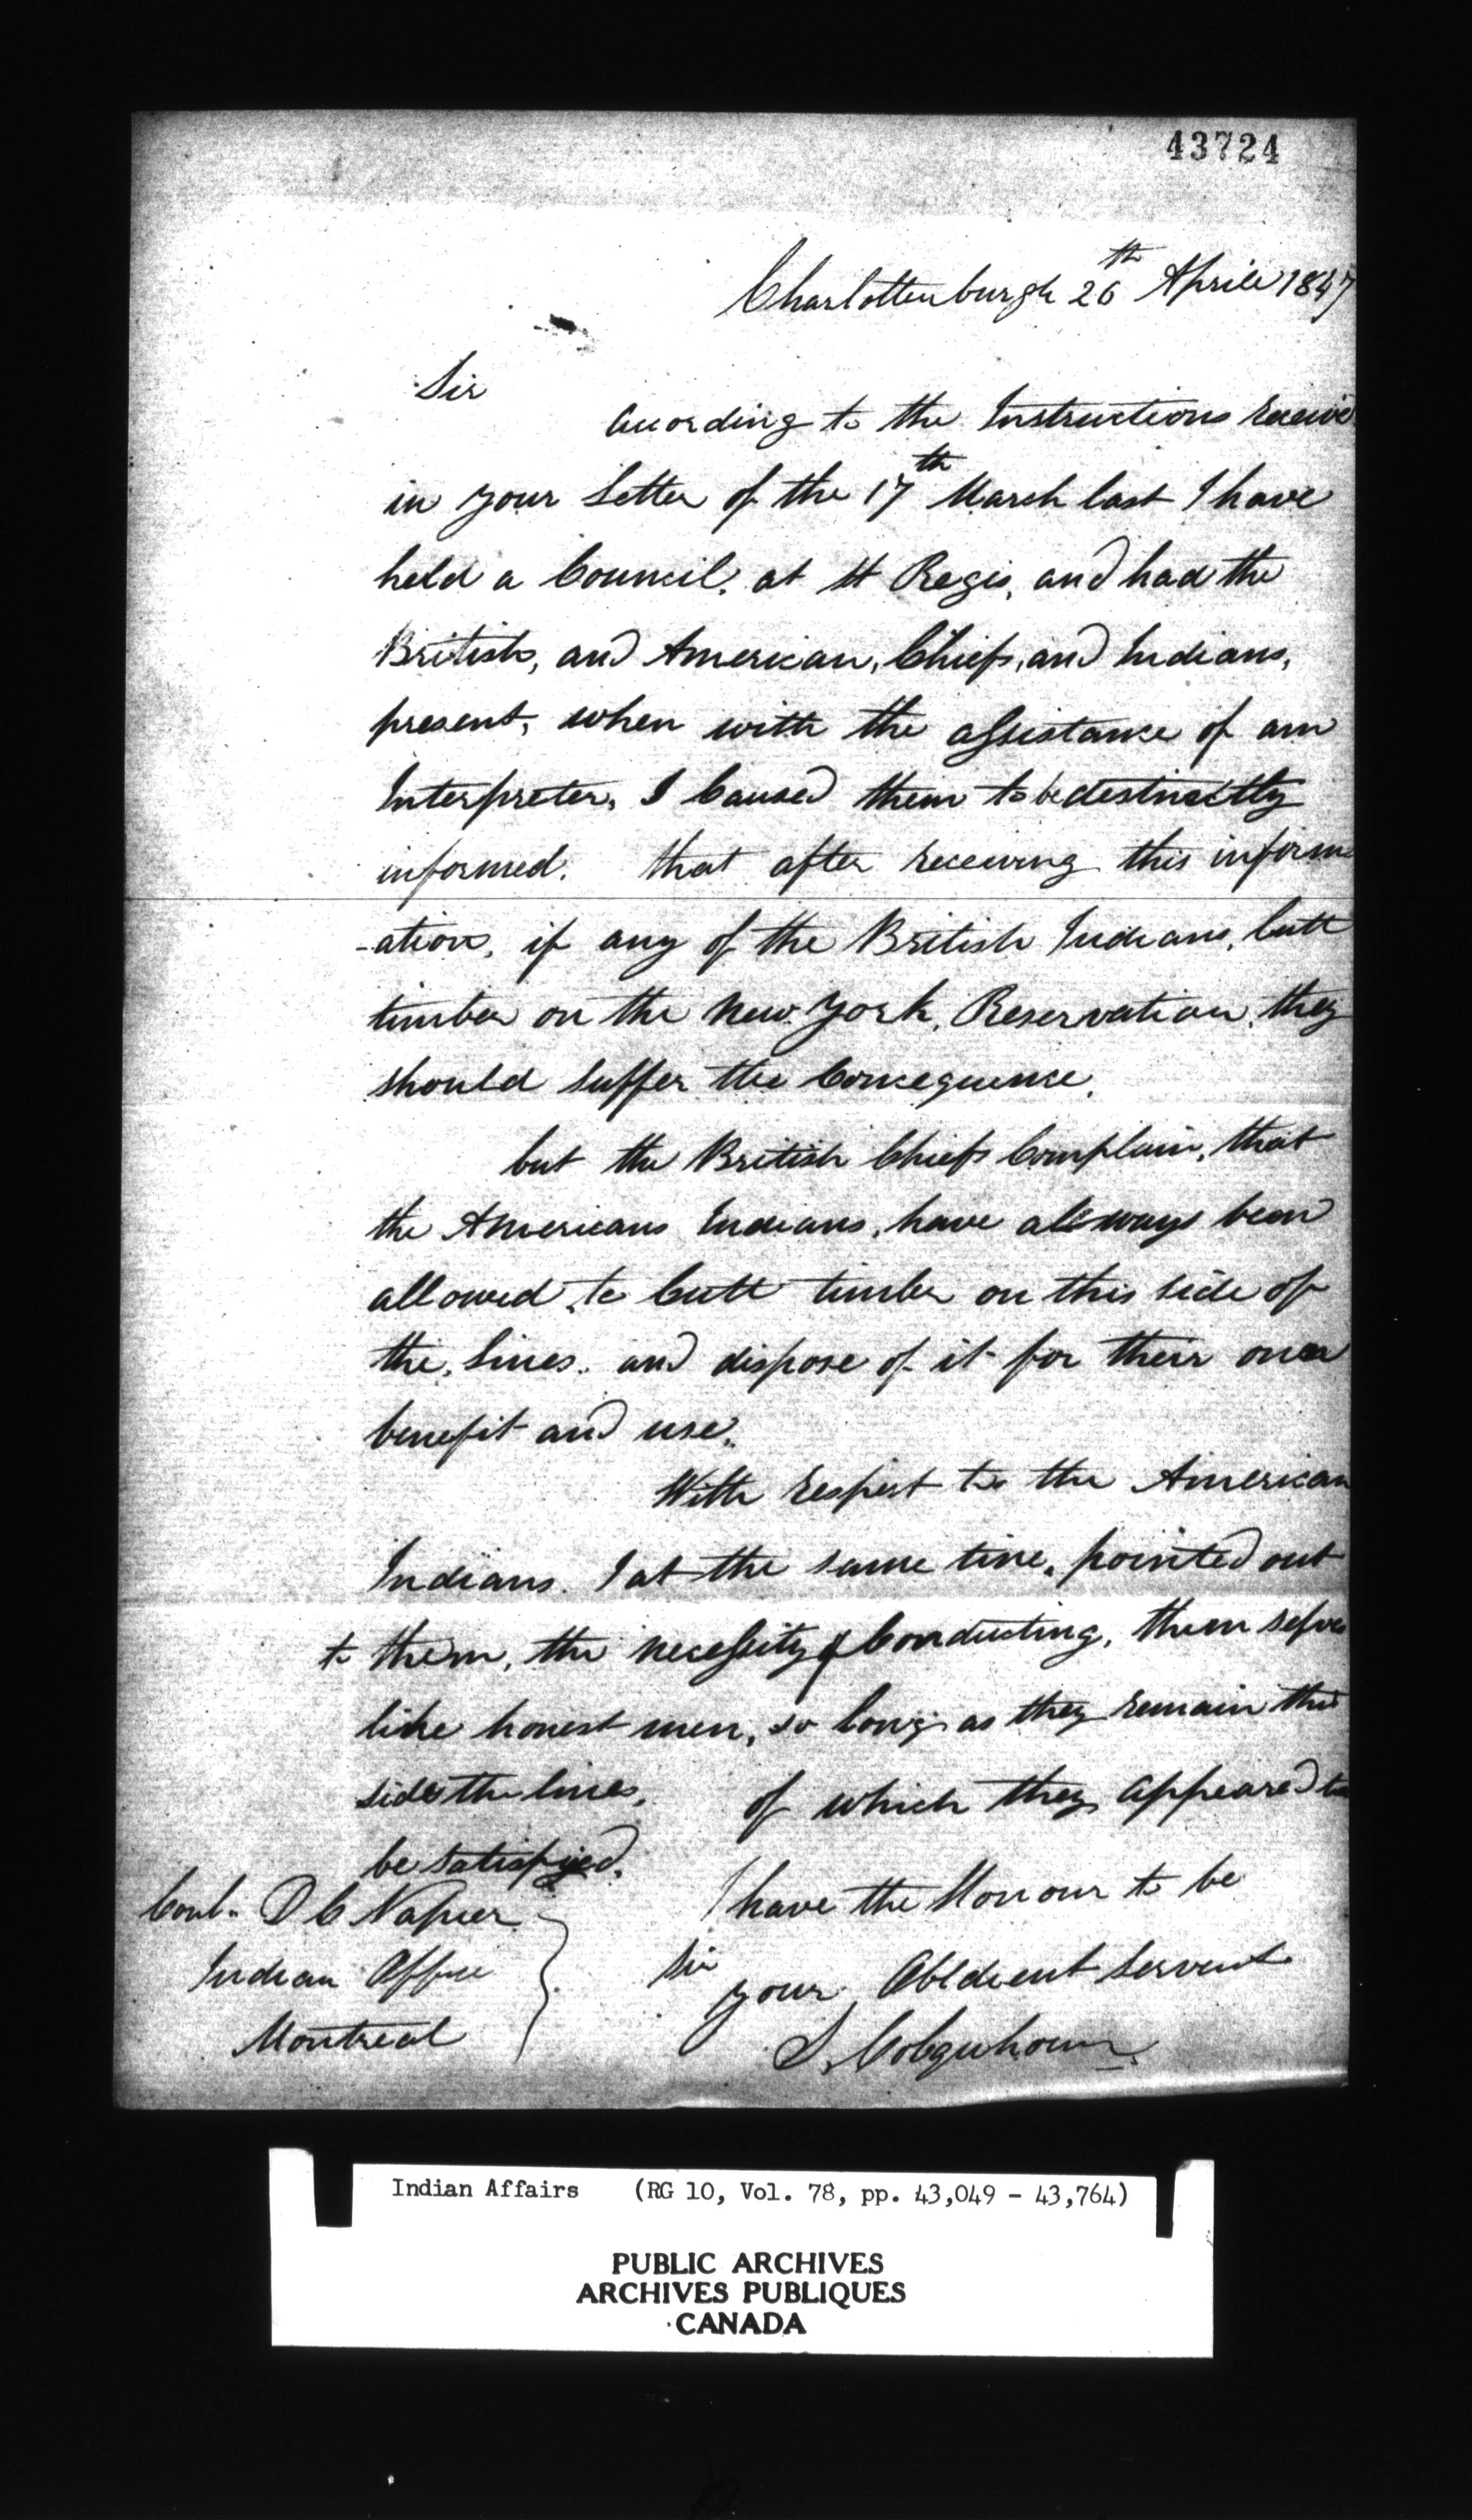 43724
Charlottenburgh 26th Aprile 1847
Sir
According to the Instructions receive
in your Letter of the 17th March last I have
held a Council, at St Regis, and had the
British, and American, Chiefs, and Indians,
present, when with the assistance of an
Interpreter, I Caused them to be destinctly
informed. that after receiving this inform
-ation, if any of the British Indians, Cutt
timber on the New York, Reservation, they
should suffer the Concequence.
but the British Chiefs Complain, that
the Americans Indians, have allways been
allowed to Cutt timber on this side of
the, Lines. and dispose of it for their own
benefit and use.
With respect to the American
Indians. I at the same time, pointed out
to them, the necessity of Conducting, them selves
like honest men, so long as they remain this
side the lines, of which they appeared to
be satisfyed.
I have the Honour to be
Sir
your Obldient Servent
S. Colquhoun
D C Napier
Indian Office
Montreal
Indian Affairs (RG 10, Vol. 78, pp. 43,049 - 43,764)
PUBLIC ARCHIVES
ARCHIVES PUBLIQUES
CANADA